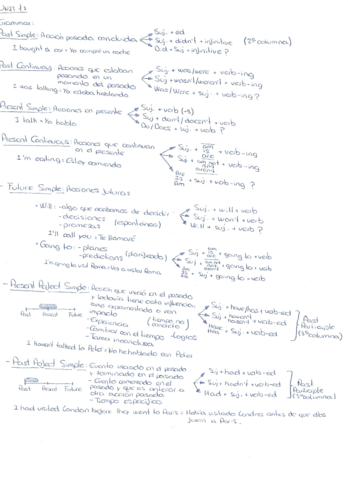 Unit 1
Grammar:
Past Simple: Acción pasada concluida
Suj. + ed
Suj. + didn't + infinitive (2ª columna)
Did + Suj + infinitive ?
I bought a car = Yo compré un coche
Past Continuous: Acciones que estaban pasando en un momento del pasado
Suj + was/were + verb-ing
Suj + wasn't/weren't + verb-ing
Was/Were + suj. + verb-ing ?
I was talking = Yo estaba hablando
Present Simple: Acciones en presente
Suj. + verb (-s)
Suj + don't/doesn't + verb
Do/Does + suj. + verb ?
I talk = Yo hablo
Present Continuous: Acciones que continuan en el presente
Suj + am is are + verb-ing
Suj + am not isn't aren't + verb-ing
Are Is Am + suj + verb-ing ?
I'm eating =
- Future Simple: Acciones futuras
* Will: - algo que acabamos de decidir
- decisiones (espontáneas)
- promesas
Suj. + will + verb
Suj. + won't + verb
Will + suj. + verb ?
I'll call you = Te llamaré
* Going to: - planes
- predictions (planeadas)
Suj + am is are + going to + verb
Suj + going to + verb
Suj + going to + verb
- Present Perfect Simple: Acción que inició en el pasado y todavía tiene cierta influencia
Past Present Future
- Experiencia (tiempo no concreto)
- Cambios con el tiempo - Logros
- Tareas inconclusas
Suj + have/has + verb-ed
Suj + haven't hasn't + verb-ed
Have Has + Suj. + verb-ed ?
Past Participle (3ª columna)
I haven't talked to Peter = No he hablado con Peter
- Past Perfect Simple: Evento iniciado en el pasado y terminado en el pasado
Past Present Future
- Evento en el pasado y que es anterior a otra acción pasada
- Tiempo específico
Suj + had + verb-ed
Suj + hadn't + verb-ed
Had + suj. + verb-ed ?
Past Participle (3ª columna)
I had visited London before they went to Paris = Había visitado Londres antes de que ellos fueran a París.